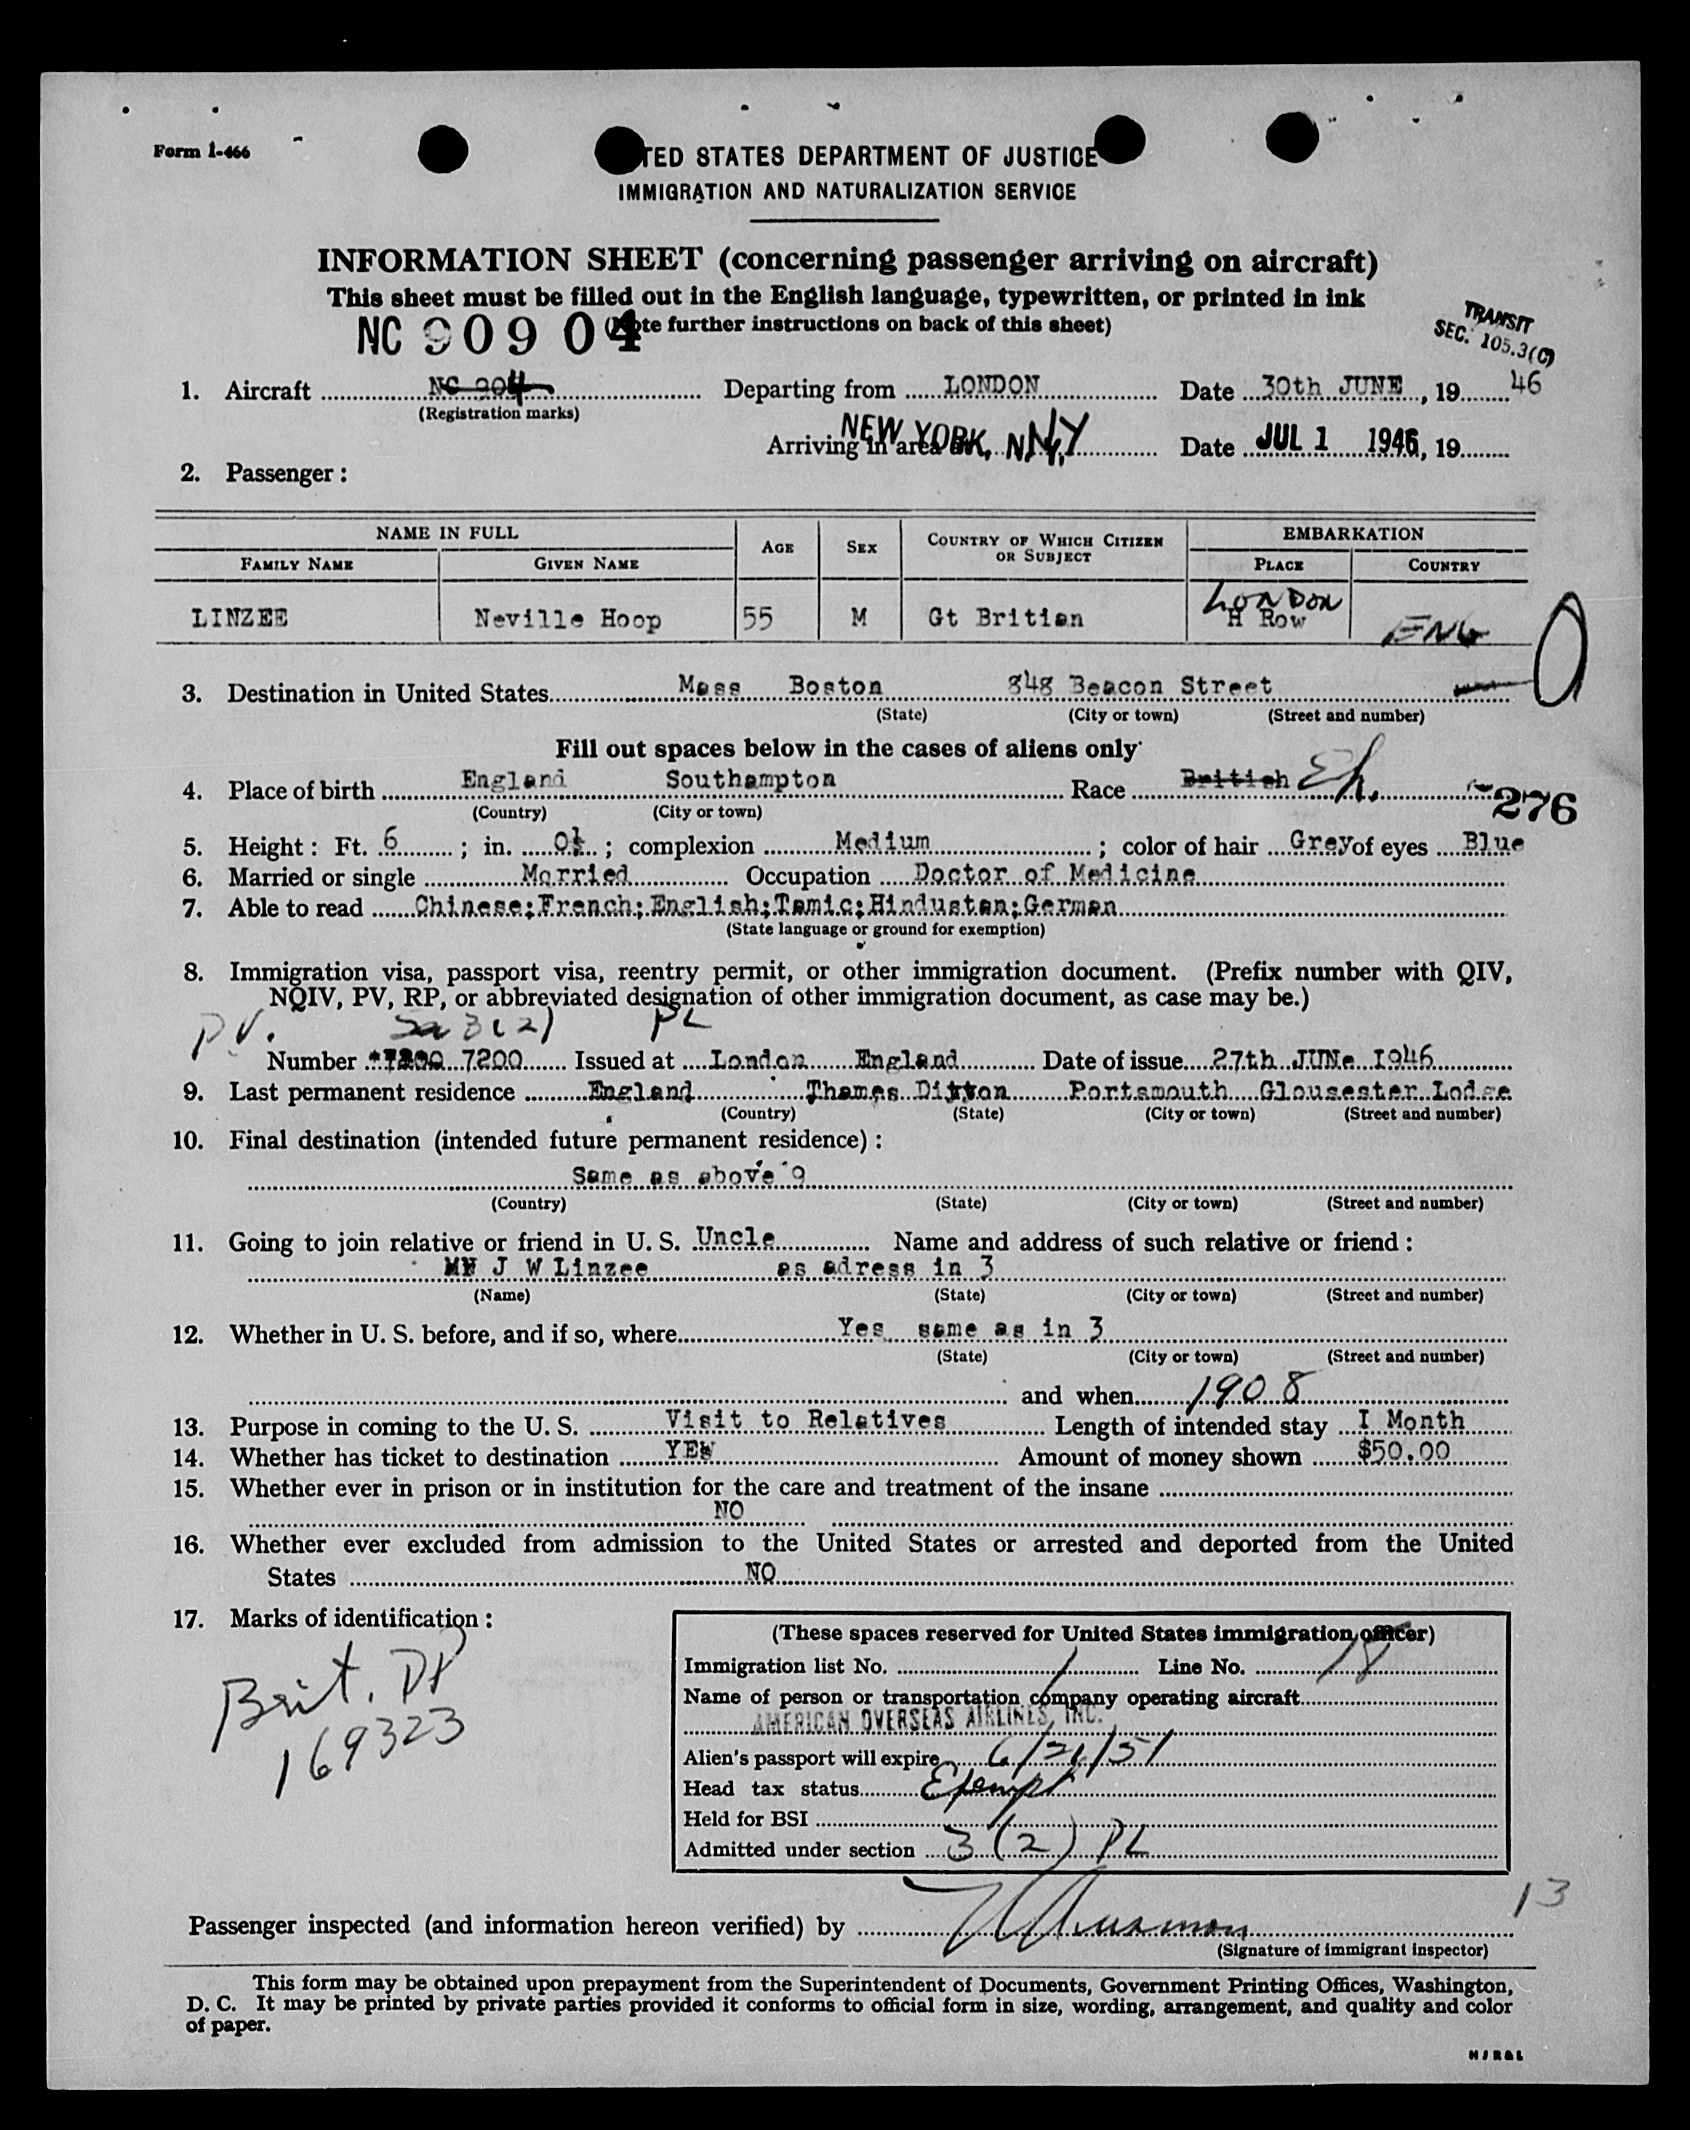 Form I-466
TED STATES DEPARTMENT OF JUSTICE
IMMIGRATION AND NATURALIZATION SERVICE
INFORMATION SHEET (concerning passenger arriving on aircraft)
This sheet must be filled out in the English language, typewritten, or printed in ink
NC 90904 (Note further instructions on back of this sheet)
TRANSIT
SEC. 105.3(C)
1. Aircraft NC 904 Departing from LONDON Date 30th JUNE, 1946
(Registration marks)
Arriving in area NEW YORK, N.Y. Date JUL 1 1946, 19
2. Passenger:
NAME IN FULL AGE SEX COUNTRY OF WHICH CITIZEN OR SUBJECT EMBARKATION
FAMILY NAME GIVEN NAME PLACE COUNTRY
LONDON
LINZEE Neville Hoop 55 M Gt Britian H Row ENG
3. Destination in United States Mass Boston 848 Beacon Street
(State) (City or town) (Street and number)
Fill out spaces below in the cases of aliens only
4. Place of birth England Southampton Race British Eh.
(Country) (City or town)
276
5. Height: Ft. 6; in. 0½; complexion Medium; color of hair Grey of eyes Blue
6. Married or single Married Occupation Doctor of Medicine
7. Able to read Chinese;French;English;Tamic;Hindustan;German
(State language or ground for exemption)
8. Immigration visa, passport visa, reentry permit, or other immigration document. (Prefix number with QIV,
NQIV, PV, RP, or abbreviated designation of other immigration document, as case may be.)
P.V. 3(2) PL
Number 7200 Issued at London England Date of issue 27th JUNe I946
9. Last permanent residence England Thames Ditton Portsmouth Glousester Lodge
(Country) (State) (City or town) (Street and number)
10. Final destination (intended future permanent residence):
Same as above 9
(Country) (State) (City or town) (Street and number)
11. Going to join relative or friend in U. S. Uncle Name and address of such relative or friend:
J W Linzee as adress in 3
(Name) (State) (City or town) (Street and number)
12. Whether in U. S. before, and if so, where Yes same as in 3
(State) (City or town) (Street and number)
and when 1908
13. Purpose in coming to the U. S. Visit to Relatives Length of intended stay I Month
14. Whether has ticket to destination YEs Amount of money shown $50.00
15. Whether ever in prison or in institution for the care and treatment of the insane
NO
16. Whether ever excluded from admission to the United States or arrested and deported from the United
States NO
17. Marks of identification:
Brit. PP
169323
(These spaces reserved for United States immigration officer)
Immigration list No. 1 Line No. 18
Name of person or transportation company operating aircraft
AMERICAN OVERSEAS AIRLINES, INC.
Alien's passport will expire 6/21/51
Head tax status Exempt
Held for BSI
Admitted under section 3(2) PL
13
Passenger inspected (and information hereon verified) by
(Signature of immigrant inspector)
This form may be obtained upon prepayment from the Superintendent of Documents, Government Printing Offices, Washington,
D. C. It may be printed by private parties provided it conforms to official form in size, wording, arrangement, and quality and color
of paper.